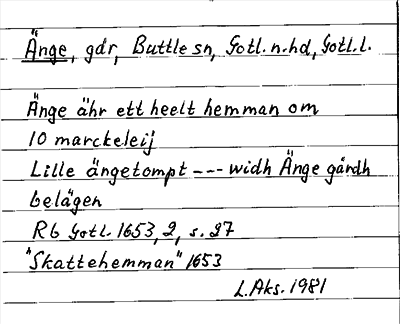 Änge, gdr, Buttle sn, Gotl. n. hd, Gotl. l.
Änge ähr ett heelt hemman om
10 marckeleij
Lille ängetompt --- widh Änge gårdh
belägen
Rb Gotl. 1653, 2, s. 27
"Skattehemman" 1653
L. Aks. 1981